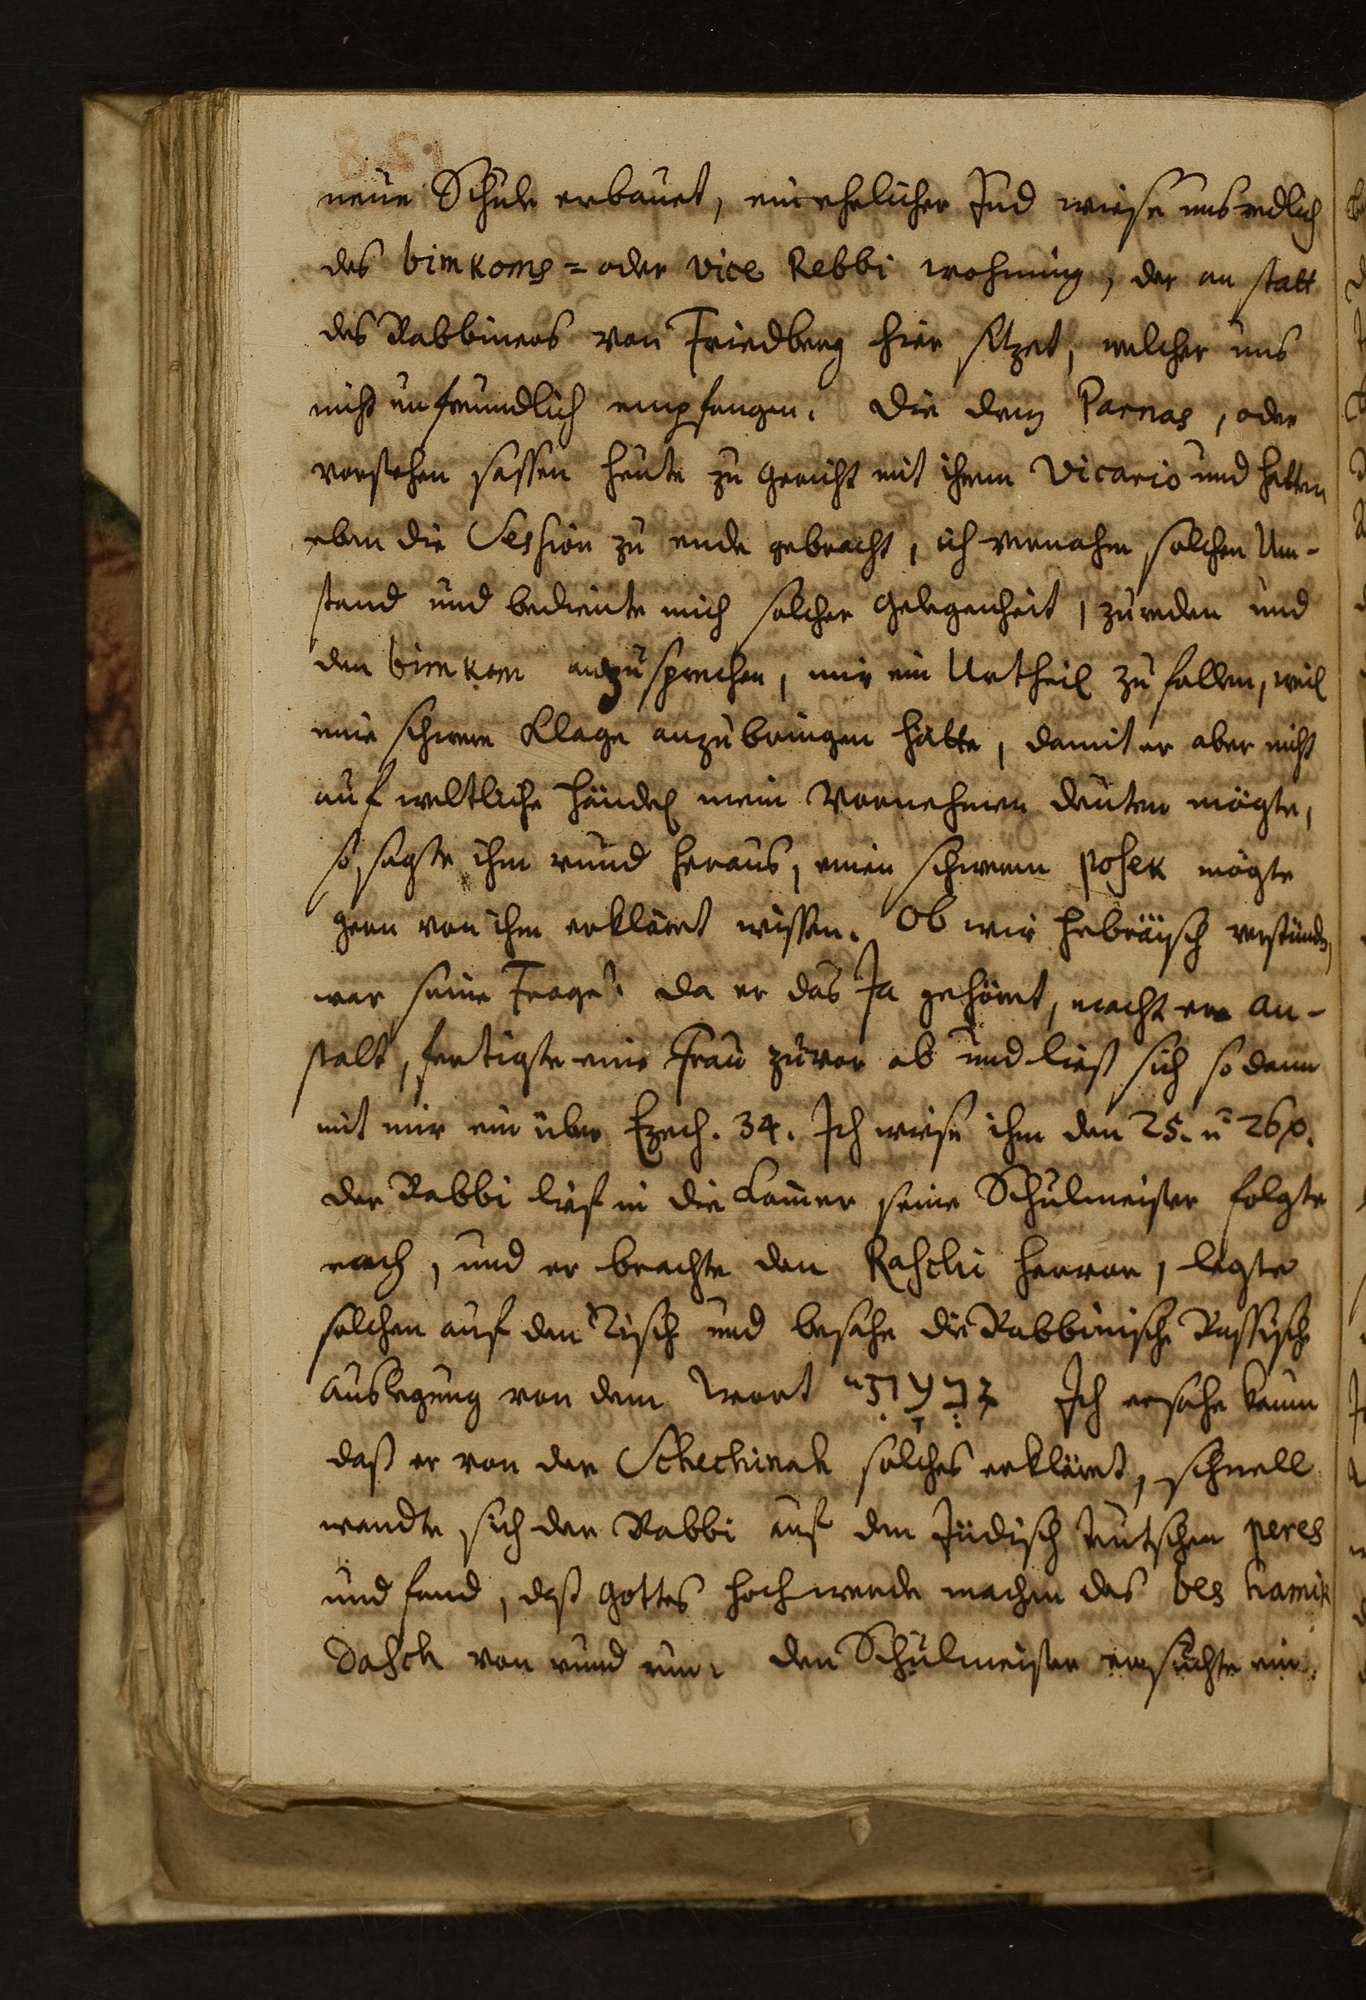 neue Schule erbauet, ein ehrlicher Jud wiese uns endlich
des bimkoms= oder vice Rebbi wohnung, der an statt
des Rabbiners von Friedberg hier sitzet, welcher uns
nicht unfreundlich empfangen. Die drey Parnas, oder
vorsteher sassen heute zu gericht mit ihrem Vicario und hatten
eben die Session zu ende gebracht, ich vernahm solchen Um-
stand und bediente mich solcher gelegenheit, zu reden und
den bimkom anzusprechen, mir ein Urtheil zu fällen, weil
eine schwere Klage anzubringen hätte, damit er aber nicht
auf weltliche händel mein Vornehmen deuten mögte,
so sagte ihm rund heraus, einen schweren posek mögte
gern von ihm erkläret wissen. Ob wir hebräisch verstünden,
war seine Frage? da er das Ja gehöret, macht er an-
stalt, fertigte eine Frau zuvor ab und ließ sich so dann
mit mir ein über Ezech. 34. Ich wiese ihm den 25. u 26 p.
der Rabbi lief in die Kammer seine Schulmeister folgte
nach, und er brachte den Raschi hervor, legte
solchen auf den Tisch und besahe die Rabbinische Rassische
auslegung von dem wort Ich ersahe kaum
daß er von der Schechinah solches erkläret, schnell
wandte sich der Rabbi auf den Jüdisch teutschen peres
und fand, daß gottes hoch werde machen das bes hamik
dasch von rund um. den Schulmeister ersuchte ein